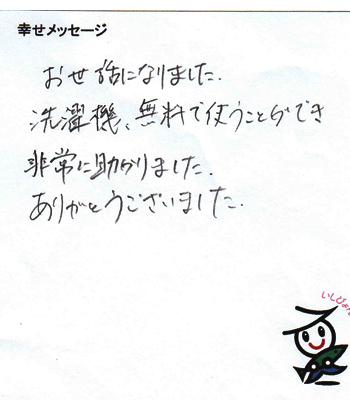 幸せメッセージ
お世話になりました.
洗濯機、無料で使うことができ
非常に助かりました.
ありがとうございました.